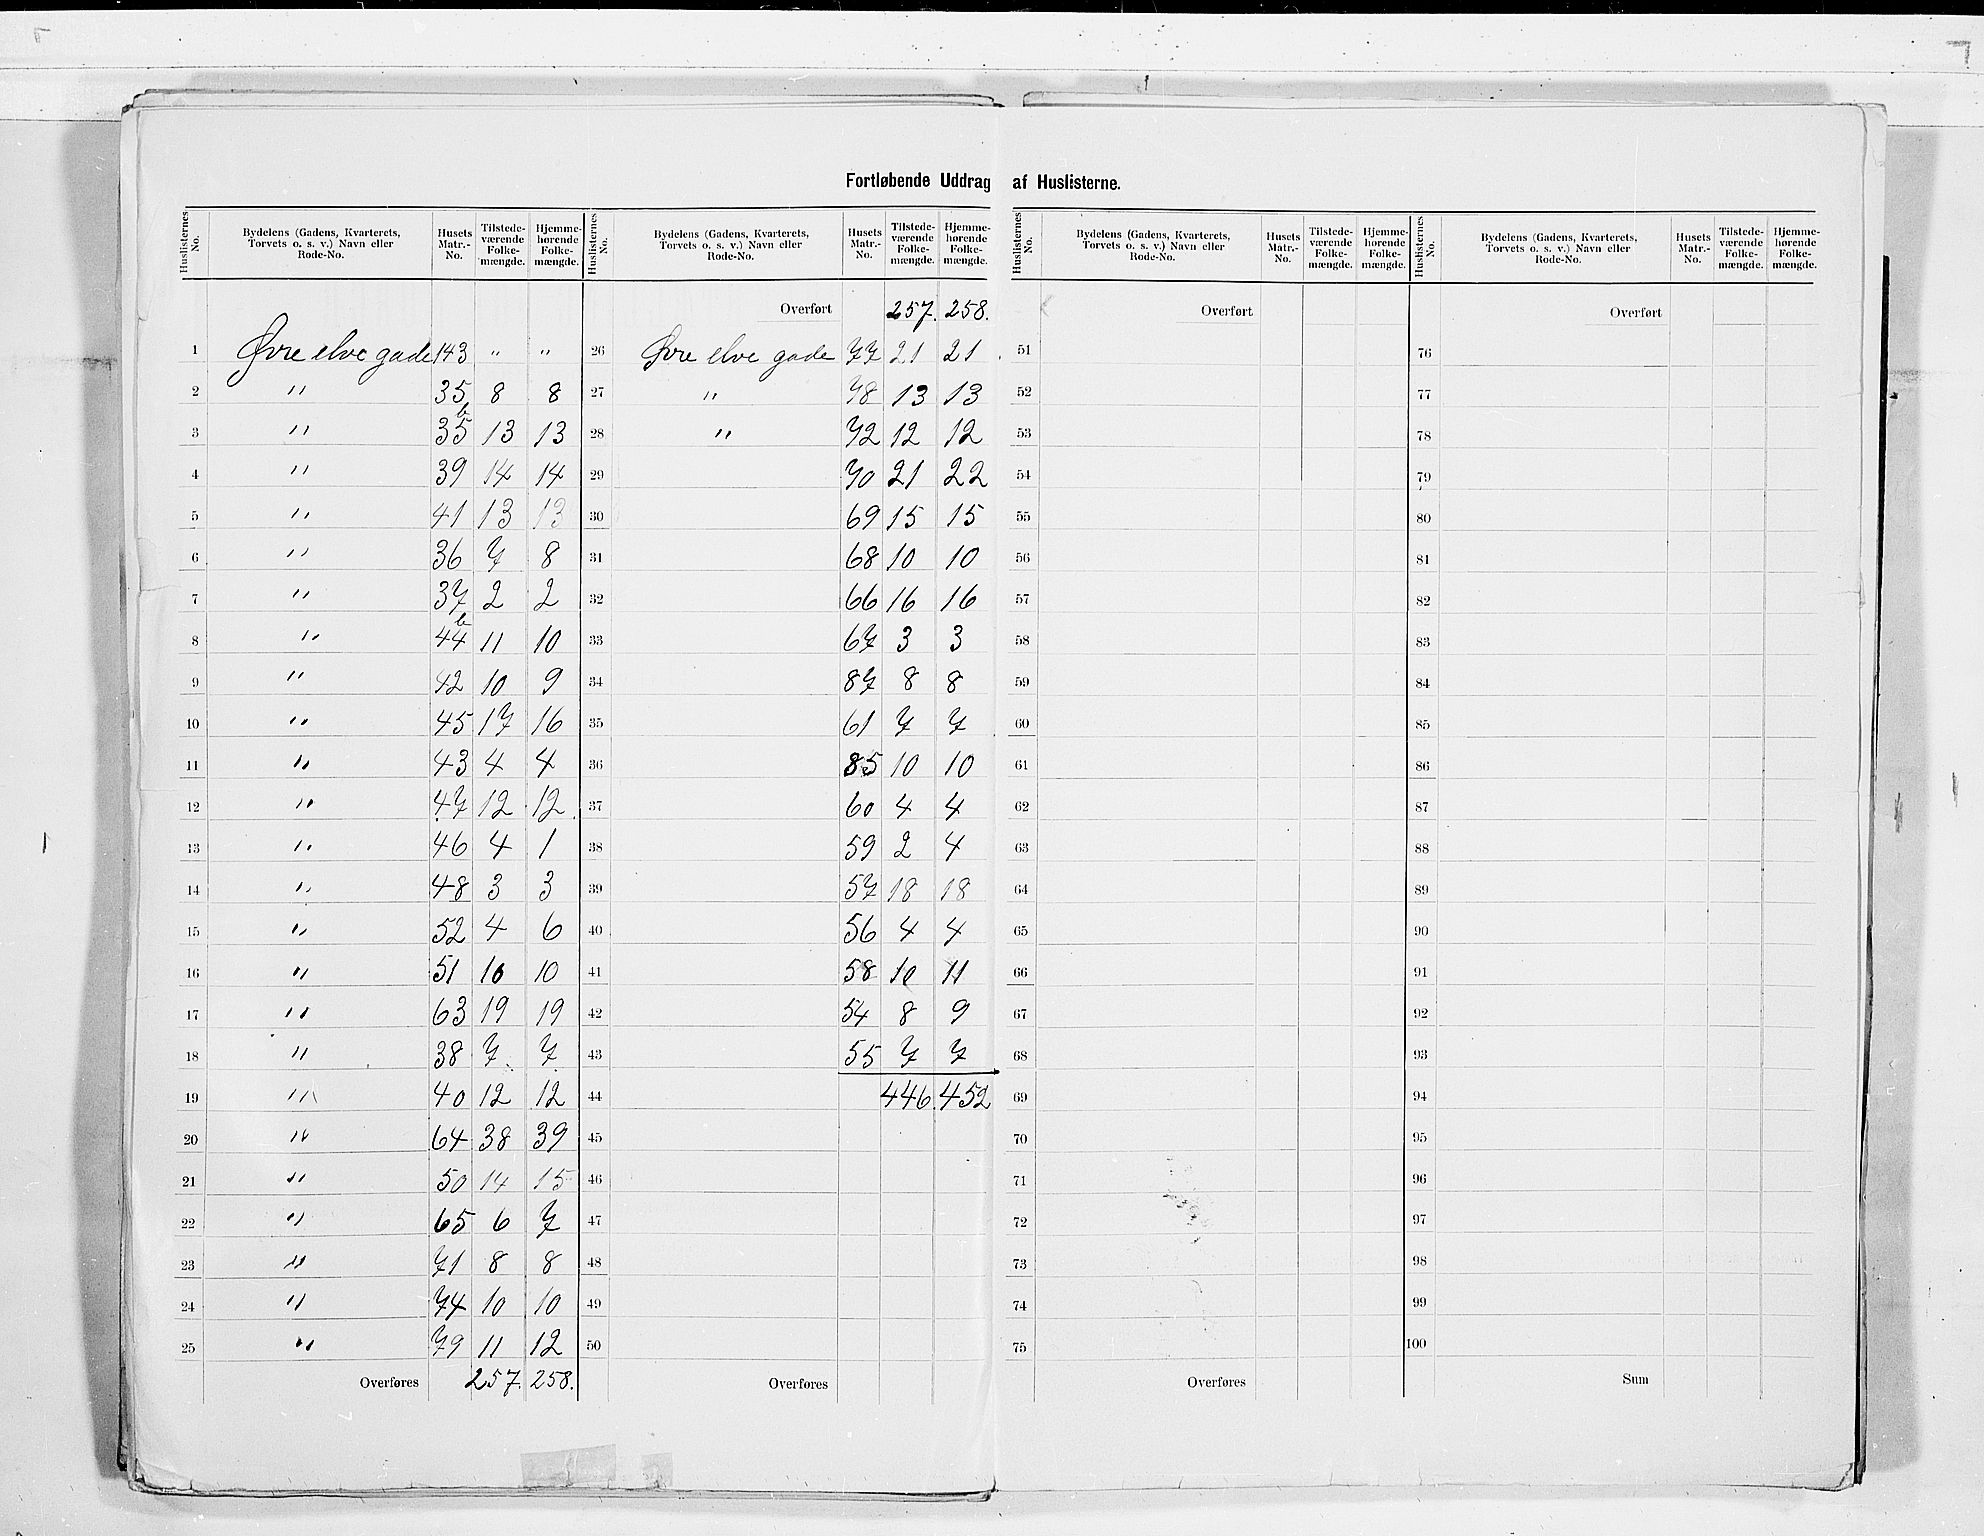 Fortløbende Uddrag af Huslisterne.
Huslisternes No. | Bydelens (Gadens, Kvarterets, Torvets o. s. v.) Navn eller Rode-No. | Husets Matr.-No. | Tilstedeværende Folkemængde. | Hjemmehørende Folkemængde. | Huslisternes No. | Bydelens (Gadens, Kvarterets, Torvets o. s. v.) Navn eller Rode-No. | Husets Matr.-No. | Tilstedeværende Folkemængde. | Hjemmehørende Folkemængde. | Huslisternes No. | Bydelens (Gadens, Kvarterets, Torvets o. s. v.) Navn eller Rode-No. | Husets Matr.-No. | Tilstedeværende Folkemængde. | Hjemmehørende Folkemængde. | Huslisternes No. | Bydelens (Gadens, Kvarterets, Torvets o. s. v.) Navn eller Rode-No. | Husets Matr.-No. | Tilstedeværende Folkemængde. | Hjemmehørende Folkemængde.
Overført 257. 258. Overført Overført
1 Øvre elve gade 143 " " 26 Øvre elve gade 77 21 21 51 76
2 " 35 8 8 27 " 78 13 13 52 77
3 " 35b 13 13 28 " 72 12 12 53 78
4 " 39 14 14 29 70 21 22 54 79
5 " 41 13 13 30 69 15 15 55 80
6 " 36 7 8 31 68 10 10 56 81
7 " 37 2 2 32 66 16 16 57 82
8 " 44b 11 10 33 67 3 3 58 83
9 " 42 10 9 34 87 8 8 59 84
10 " 45 17 16 35 61 7 7 60 85
11 " 43 4 4 36 85 10 10 61 86
12 " 47 12 12 37 60 4 4 62 87
13 " 46 4 1 38 59 2 4 63 88
14 " 48 3 3 39 57 18 18 64 89
15 " 52 4 6 40 56 4 4 65 90
16 " 51 10 10 41 58 10 11 66 91
17 " 63 19 19 42 54 8 9 67 92
18 " 38 7 7 43 55 7 7 68 93
19 " 40 12 12 44 446. 452 69 94
20 " 64 38 39 45 70 95
21 " 50 14 15 46 71 96
22 " 65 6 7 47 72 97
23 " 71 8 8 48 73 98
24 " 74 10 10 49 74 99
25 " 79 11 12 50 75 100
Overføres 257. 258. Overføres Overføres Sum